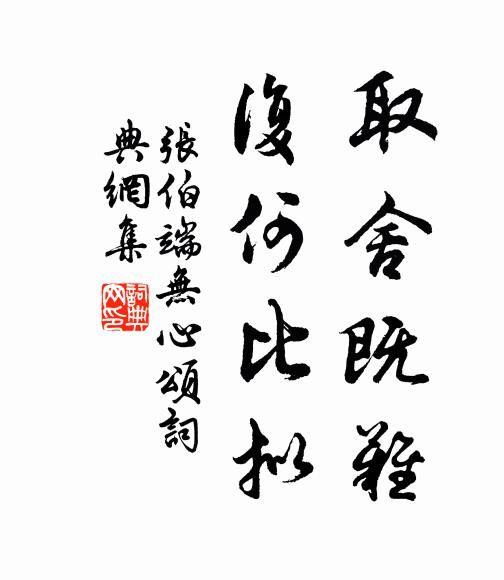 取舍既難
復何比拟
張伯端無心頌詞
典網集
詞典網印